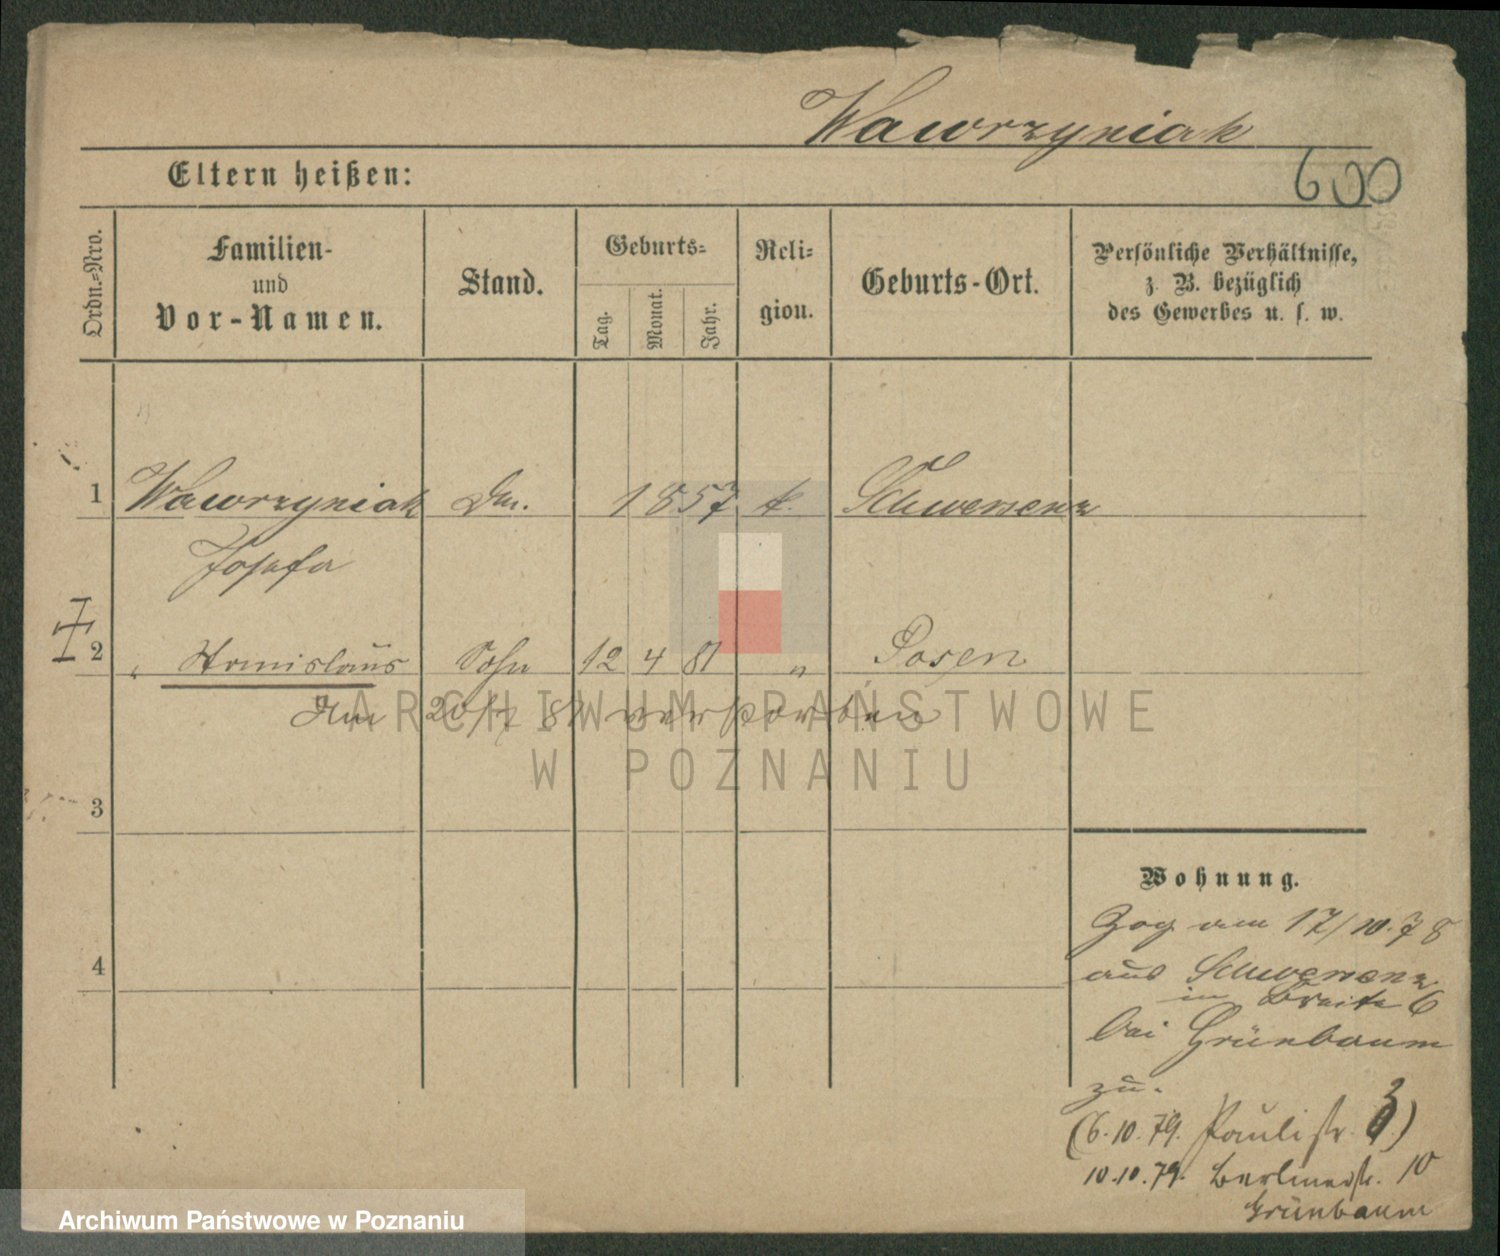 Wawrzyniak
600
Eltern heißen:
Ordn.-Nro.
Familien-
und
Vor-Namen.
Stand.
Geburts-
Tag.
Monat.
Jahr.
Reli-
gion.
Geburts-Ort.
Persönliche Verhältnisse,
z. B. bezüglich
des Gewerbes u. s. w.
1 Wawrzyniak 1857 k. Schwersenz
Josefa
2 " Stanislaus Sohn 12 4 81 " Posen
Am 20/7 81 verstorben
ARCHIWUM PAŃSTWOWE
W POZNANIU
3
4
Wohnung.
Zog am 17/10.78
aus Schwersenz
in Breite 6
bei Grünbaum
zu.
(6.10.79. Paulistr. 3)
10.10.79. Berlinerstr. 10
Grünbaum
Archiwum Państwowe w Poznaniu